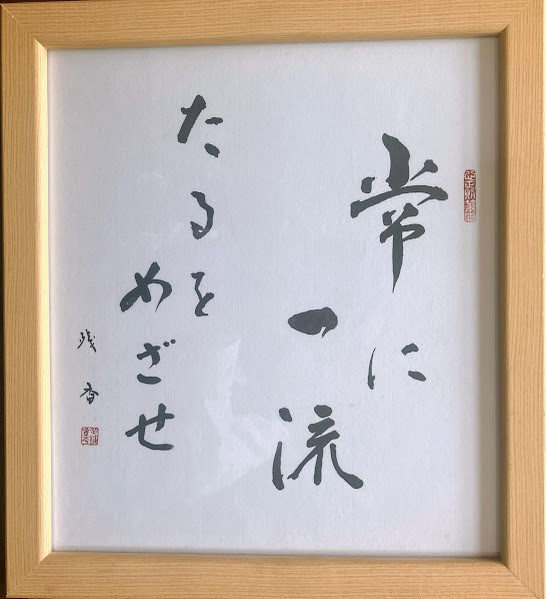 常に
一流
たるを
めざせ
残香